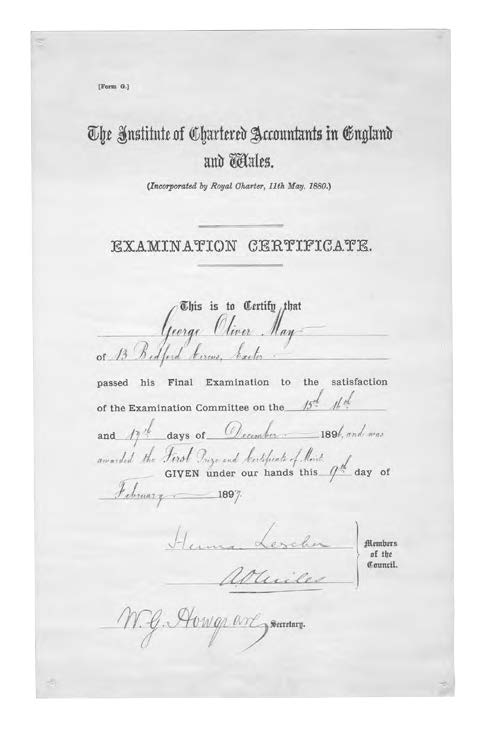 [Form G.]
The Institute of Chartered Accountants in England
and Wales.
(Incorporated by Royal Charter, 11th May, 1880.)
EXAMINATION CERTIFICATE.
This is to Certify that
George Oliver May
of 13 Bedford Circus, Exeter
passed his Final Examination to the satisfaction
of the Examination Committee on the 15th 16th
and 17th days of December 1896, and was
awarded the First Prize and Certificate of Merit.
GIVEN under our hands this 9th day of
February 1897.
Herman Lescher
Members
of the
Council.
W. G. Howgrave
Secretary.